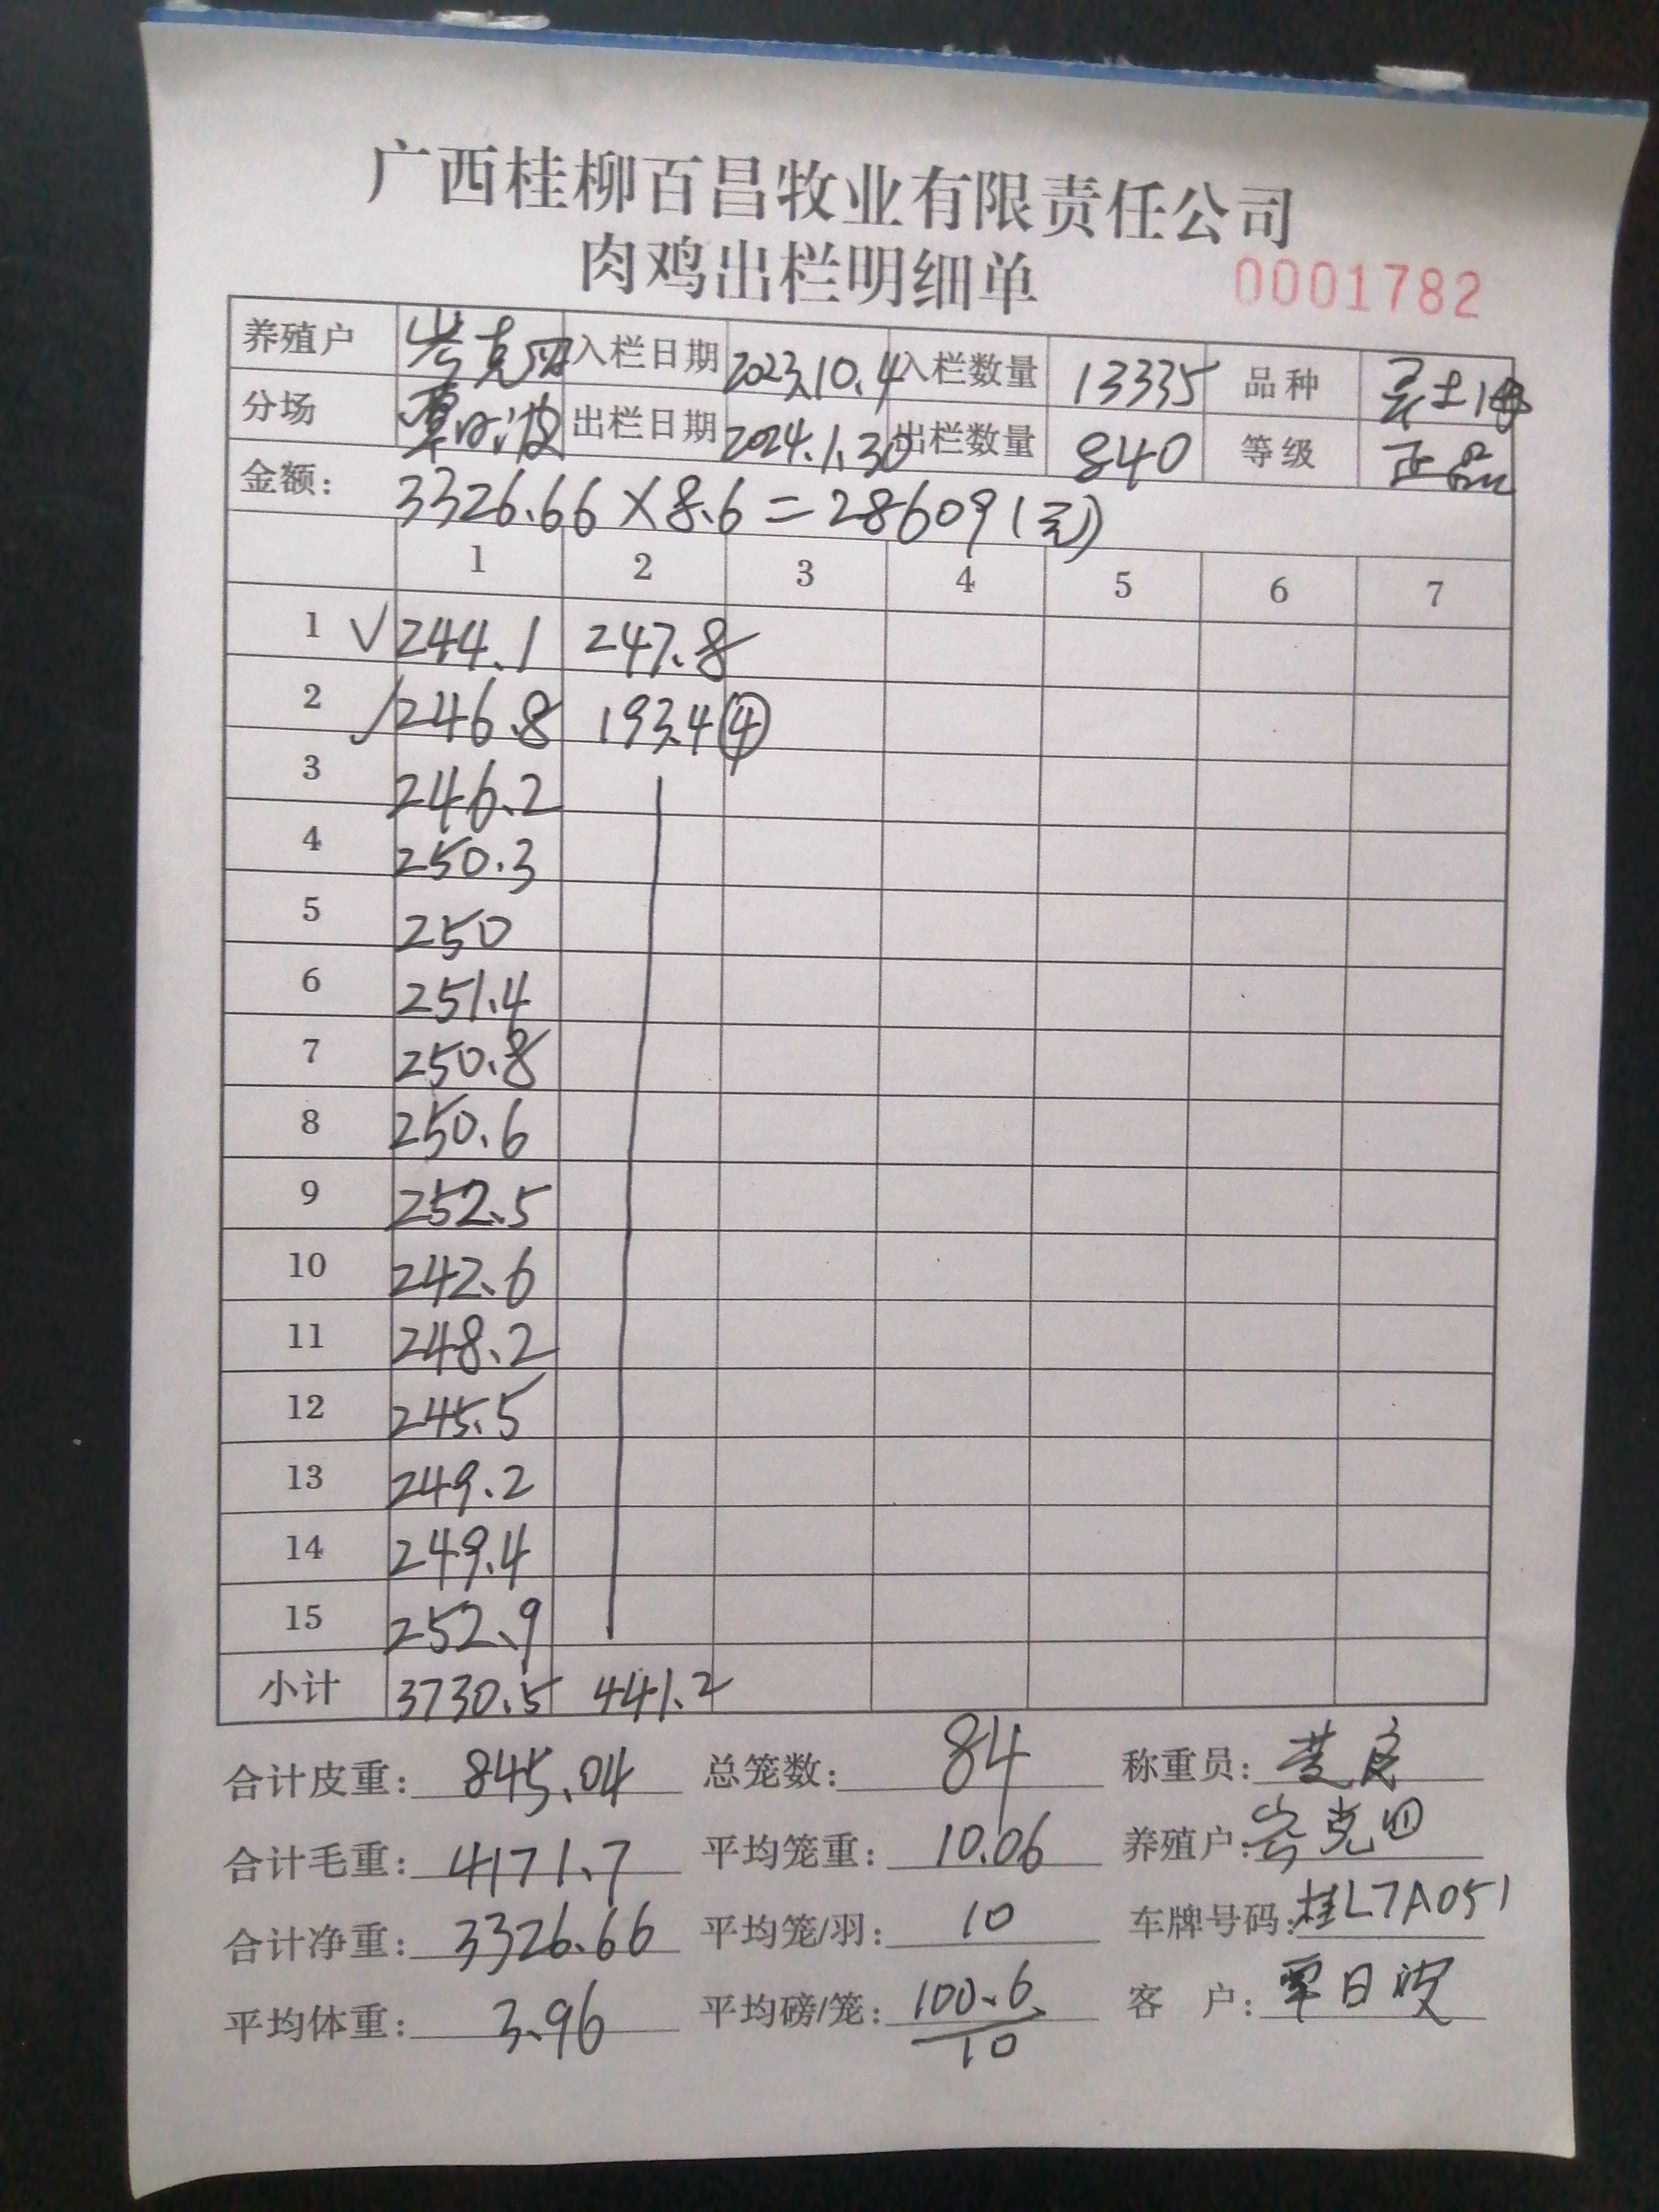 广西桂柳百昌牧业有限责任公司
肉鸡出栏明细单 0001782
养殖户 岑克四 入栏日期 2023.10.4 入栏数量 13335 品种 灵土1母
分场 覃日波 出栏日期 2024.1.30 出栏数量 840 等级 正品
金额: 3326.66×8.6=28609(元)
1 2 3 4 5 6 7
1 √ 244.1 247.8
2 √ 246.8 193.4 ④
3 246.2
4 250.3
5 250
6 251.4
7 250.8
8 250.6
9 252.5
10 242.6
11 248.2
12 245.5
13 249.2
14 249.4
15 252.9
小计 3730.5 441.2
合计皮重: 845.04 总笼数: 84 称重员:
合计毛重: 4171.7 平均笼重: 10.06 养殖户: 岑克四
合计净重: 3326.66 平均笼/羽: 10 车牌号码: 桂L7A051
平均体重: 3.96 平均磅/笼: 100.6/10 客 户: 覃日波